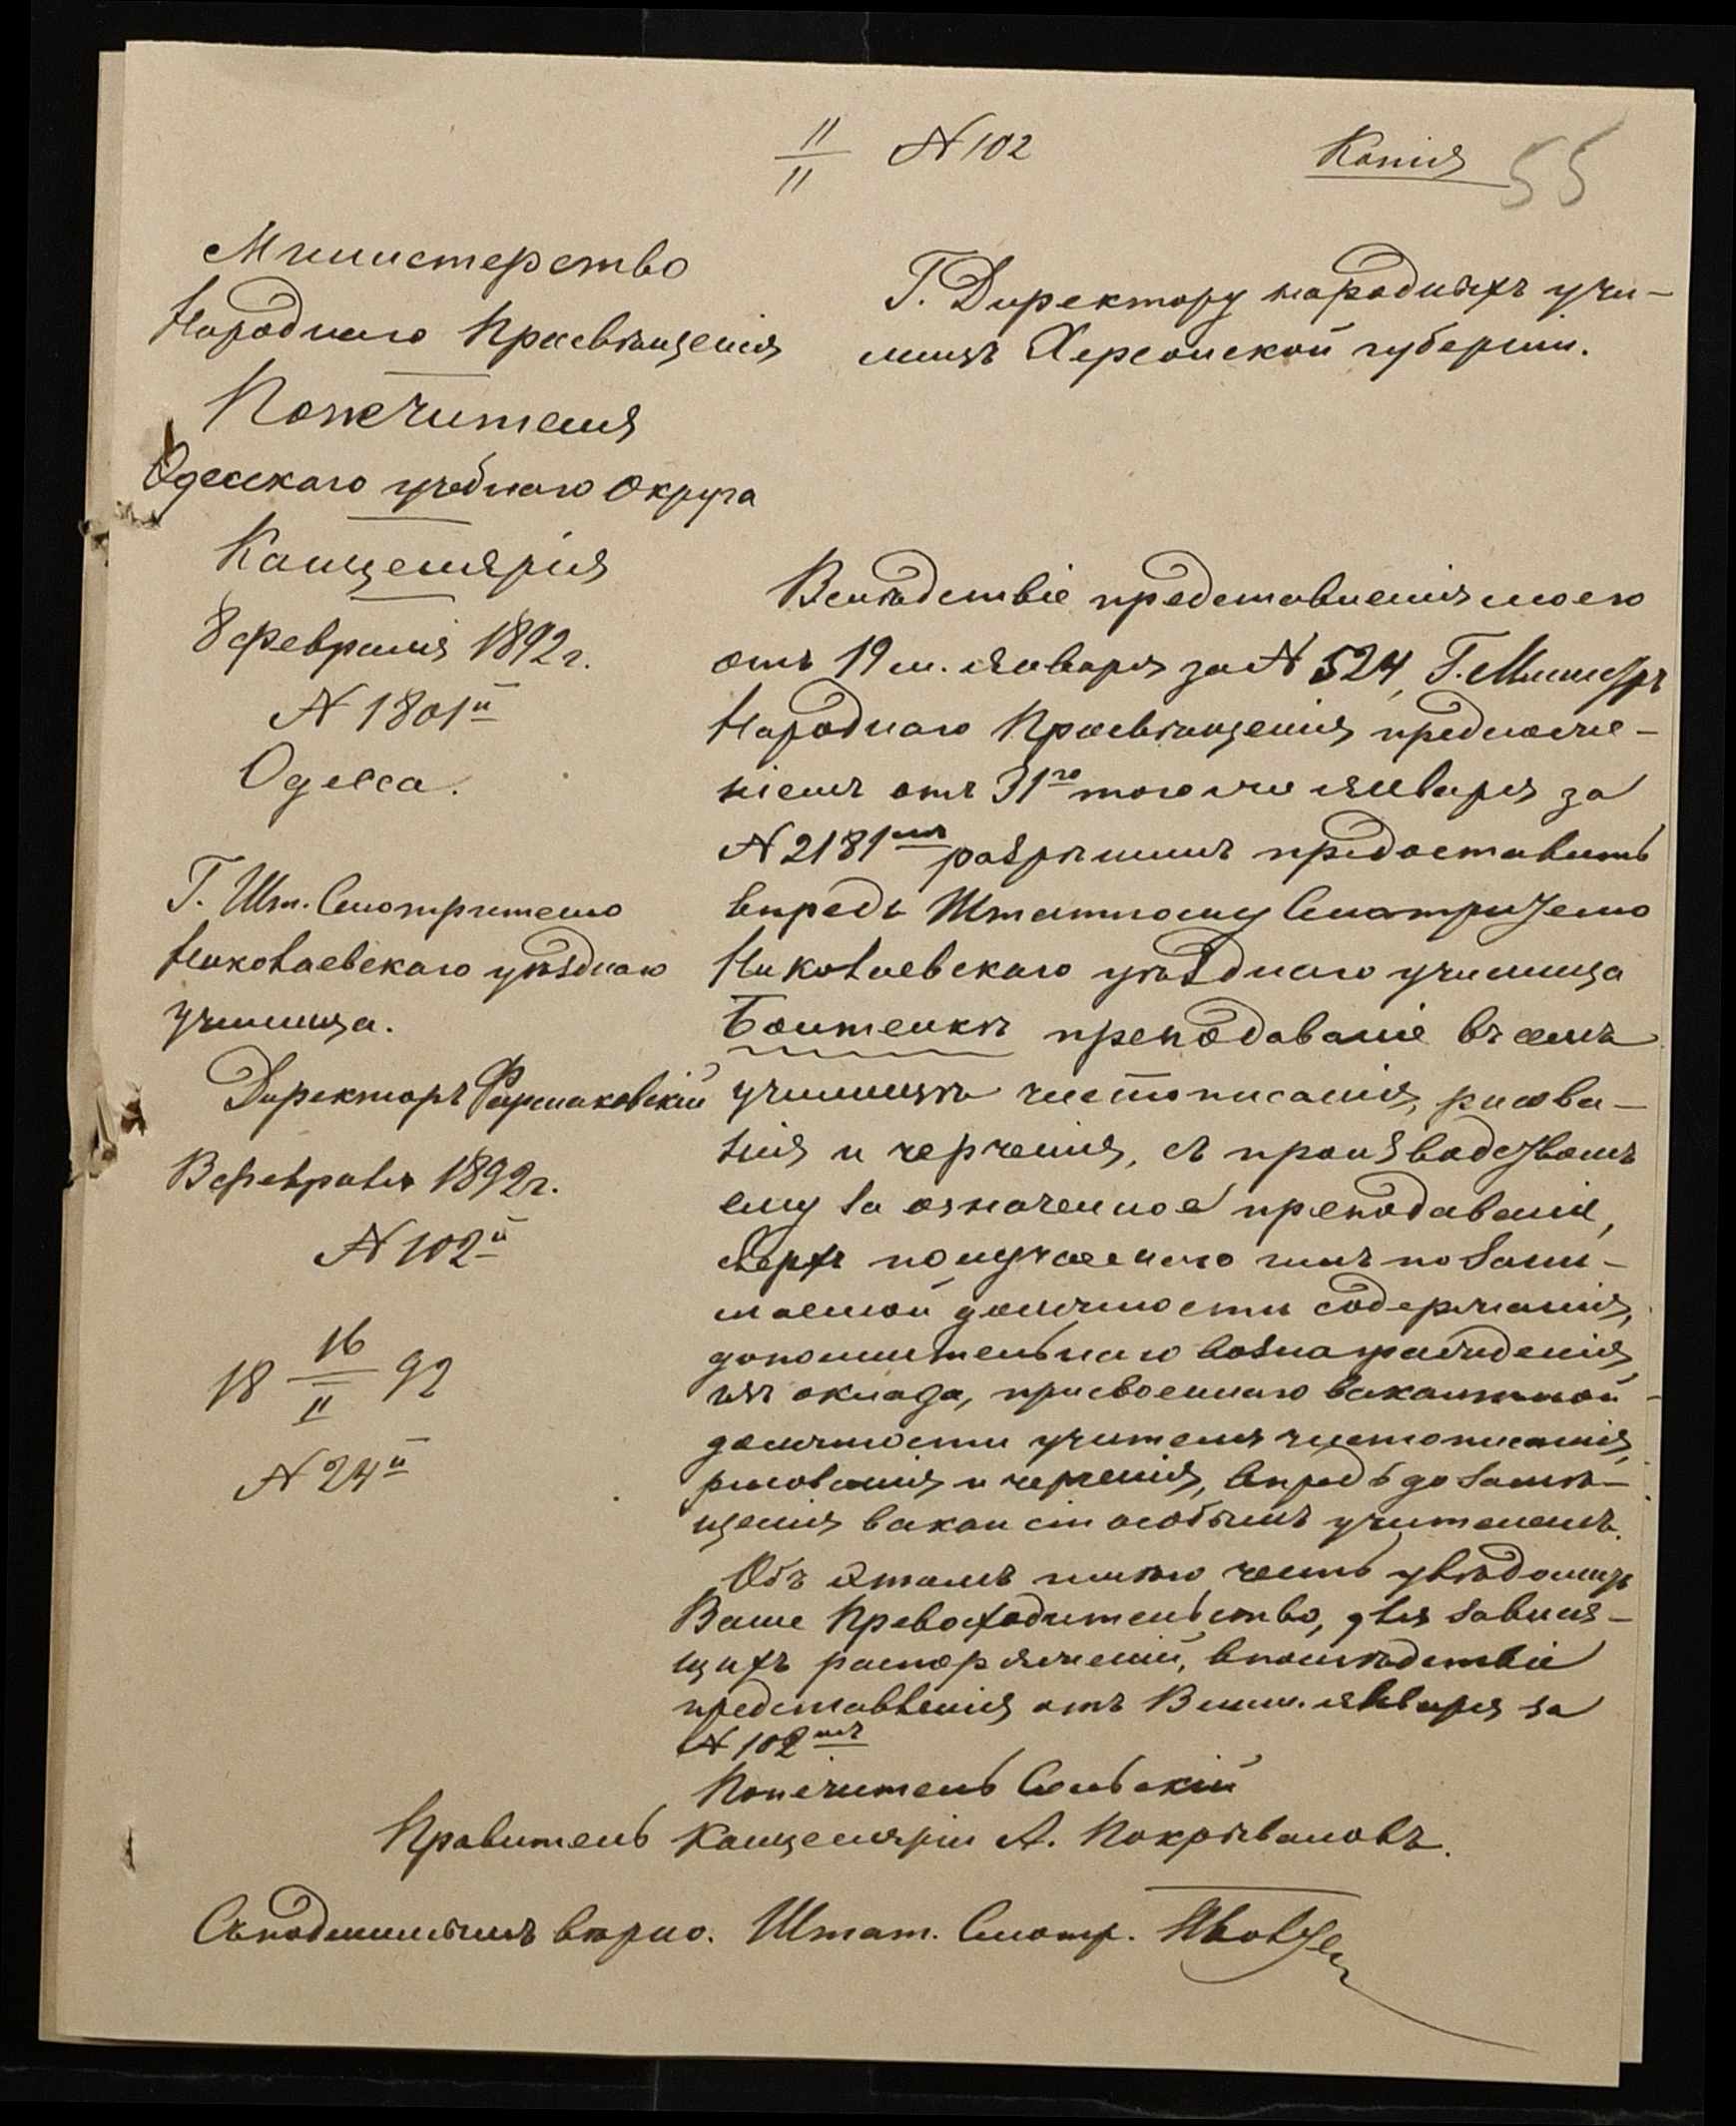 11/11 № 102
Копія
55
Министерство
Народнаго Просвѣщенія
Попечителя
Одесскаго учебнаго Округа
Канцелярія
8 февраля 1892 г.
№ 1801й
Одесса.
Г. Шт. Смотрителю
Николаевскаго уѣзднаго
училища.
Директоръ Фармаковскій
февраля 1892 г.
№ 102й
18 16/II 92
№ 24й
Г. Директору народныхъ учи-
лищъ Херсонской губерніи.
Вслѣдствіе представленія моего
отъ 19 м. января за № 524, Г. Министръ
Народнаго Просвѣщенія предложе-
ніемъ отъ 31го того же января за
№ 2181мъ разрѣшилъ предоставить
впредь Штатному Смотрителю
Николаевскаго уѣзднаго училища
преподаваніе въ семъ
училищѣ чистописанія, рисова-
нія и черченія, съ производствомъ
ему за означенное преподаваніе,
сверхъ получаемаго имъ по зани-
маемой должности содержанія,
дополнительнаго вознагражденія
изъ оклада, присвоеннаго вакантной
должности учителя чистописанія,
рисованія и черченія, впредь до замѣ-
щенія вакансіи особымъ учителемъ.
Объ этомъ имѣю честь увѣдомить
Ваше Превосходительство, для завися-
щихъ распоряженій, впослѣдствіе
представленія отъ января за
№ 102мъ
Попечитель Сольскій
Правитель Канцеляріи А. Покрываловъ.
Съ подлиннымъ вѣрно. Штат. Смотр.